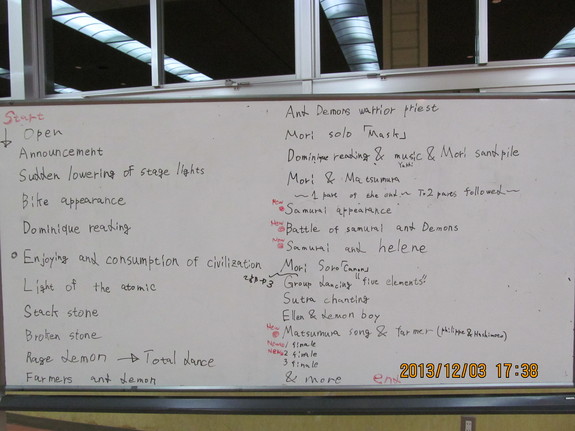 Start
Open
Announcement
Sudden lowering of stage lights
Bike appearance
Dominique reading
Enjoying and consumption of civilization
Light of the atomic
Stack stone
Broken stone
Rage Demon → Total dance
Farmers and demon
And Demons warrior priest
Mori solo「Mask」
Dominique reading & music & Mori sandpile
Yuki
Mori & Matsumura
~ 1 part of the end ~ To 2 parts followed ~
New Samurai appearance
New Battle of samurai and Demons
New Samurai and helene
Mori Soro「Canon」
Group dancing "five elements"
Sutra chanting
Ellen & Demon boy
New Matsumura song & farmer (Philippe &
1 finale
2 finale
3 finale
& more end
2013/12/03 17:38